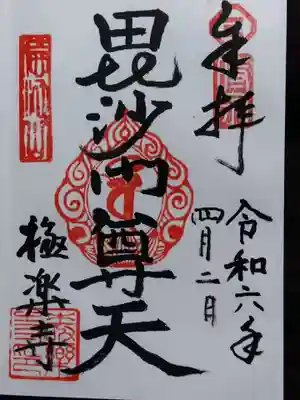 奉拝
令和六年
四月二日
毘沙門尊天
極楽寺